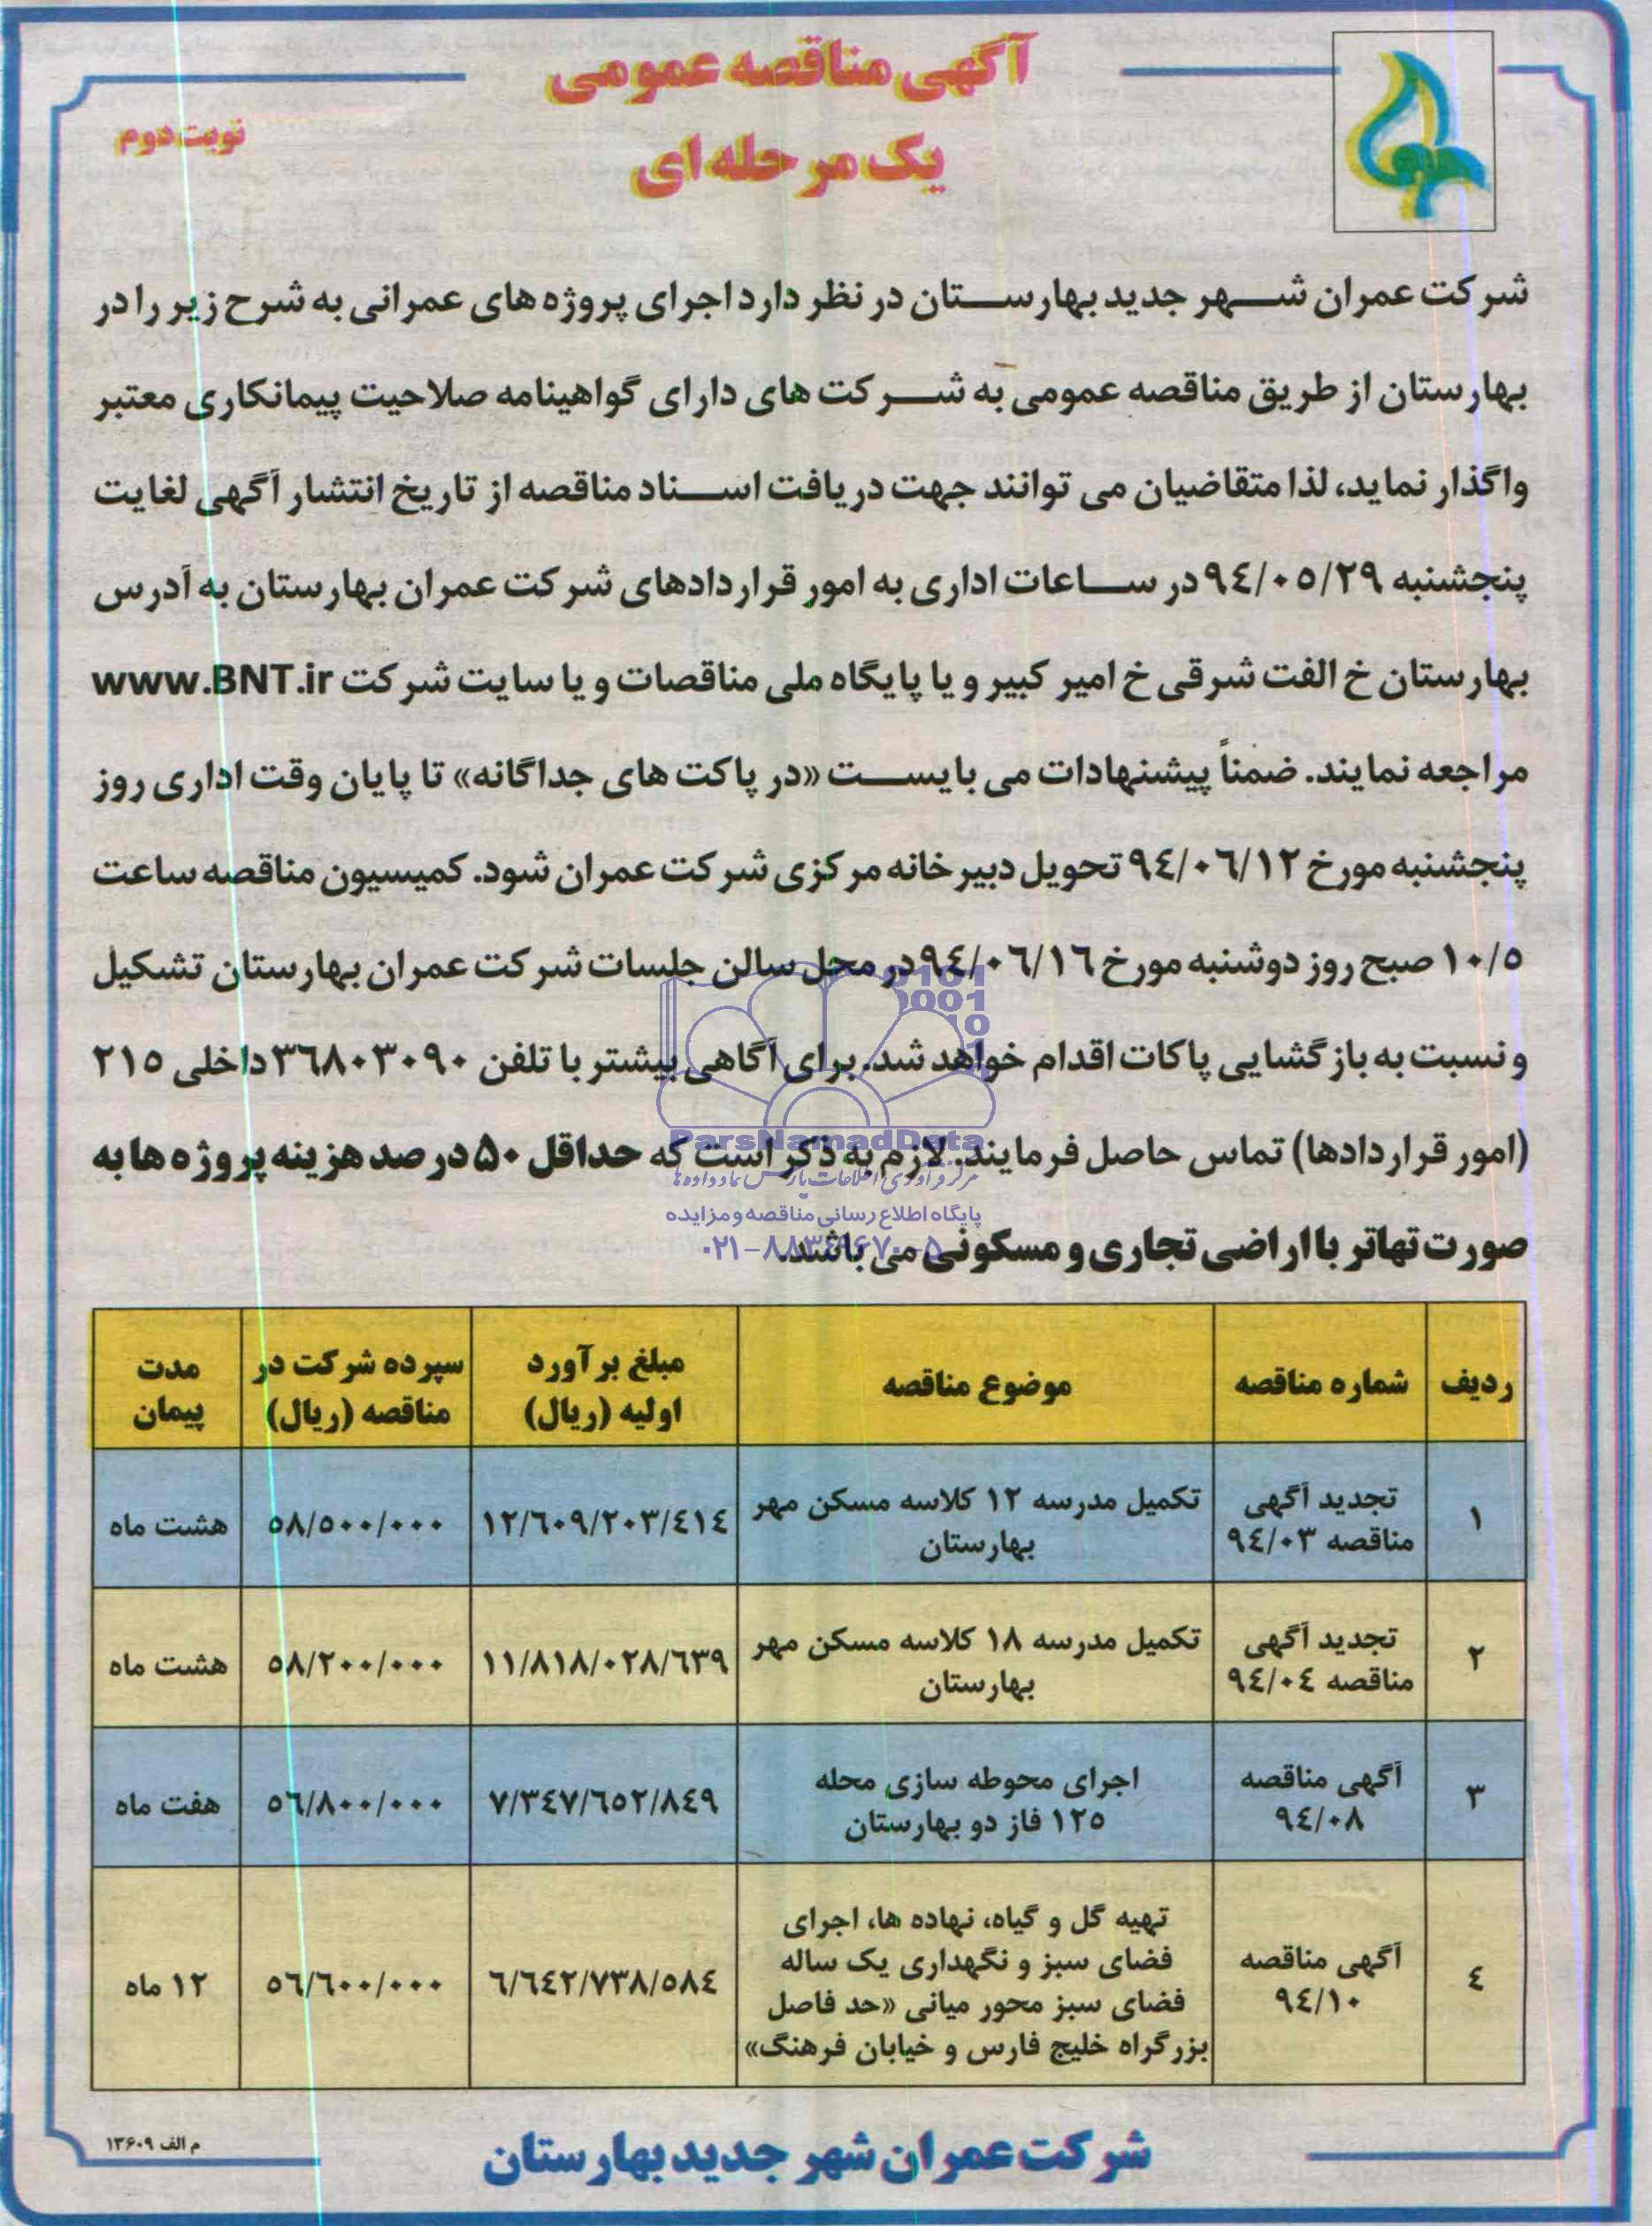 آگهی مناقصه عمومی
یک مرحله ای
نوبت دوم
شرکت عمران شهر جدید بهارستان در نظر دارد اجرای پروژه های عمرانی به شرح زیر را در
بهارستان از طریق مناقصه عمومی به شرکت های دارای گواهینامه صلاحیت پیمانکاری معتبر
واگذار نماید، لذا متقاضیان می توانند جهت دریافت اسناد مناقصه از تاریخ انتشار آگهی لغایت
پنجشنبه ۹٤/۰٥/۲۹ در ساعات اداری به امور قراردادهای شرکت عمران بهارستان به آدرس
بهارستان خ الفت شرقی خ امیر کبیر و یا پایگاه ملی مناقصات و یا سایت شرکت www.BNT.ir
مراجعه نمایند. ضمناً پیشنهادات می بایست «در پاکت های جداگانه» تا پایان وقت اداری روز
پنجشنبه مورخ ۹٤/۰٦/۱۲ تحویل دبیرخانه مرکزی شرکت عمران شود. کمیسیون مناقصه ساعت
۱۰/٥ صبح روز دوشنبه مورخ ۹٤/۰٦/۱٦ در محل سالن جلسات شرکت عمران بهارستان تشکیل
و نسبت به بازگشایی پاکات اقدام خواهد شد. برای آگاهی بیشتر با تلفن ۳٦۸۰۳۰۹۰ داخلی ۲۱٥
(امور قراردادها) تماس حاصل فرمایند. لازم به ذکر است که حداقل ۵۰ درصد هزینه پروژه ها به
صورت تهاتر با اراضی تجاری و مسکونی می باشد.
ParsNamadData
مرکز فرآوری اطلاعات پارس نماد داده ها
پایگاه اطلاع رسانی مناقصه و مزایده
۰۲۱-۸۸۳۴۹۶۷۰-۵
ردیف | شماره مناقصه | موضوع مناقصه | مبلغ برآورد اولیه (ریال) | سپرده شرکت در مناقصه (ریال) | مدت پیمان
۱ | تجدید آگهی مناقصه ۹٤/۰۳ | تکمیل مدرسه ۱۲ کلاسه مسکن مهر بهارستان | ۱۲/٦۰۹/۲۰۳/٤۱٤ | ٥۸/٥۰۰/۰۰۰ | هشت ماه
۲ | تجدید آگهی مناقصه ۹٤/۰٤ | تکمیل مدرسه ۱۸ کلاسه مسکن مهر بهارستان | ۱۱/۸۱۸/۰۲۸/٦۳۹ | ٥۸/۲۰۰/۰۰۰ | هشت ماه
۳ | آگهی مناقصه ۹٤/۰۸ | اجرای محوطه سازی محله ۱۲٥ فاز دو بهارستان | ۷/۳٤۷/٦٥۲/۸٤۹ | ٥٦/۸۰۰/۰۰۰ | هفت ماه
٤ | آگهی مناقصه ۹٤/۱۰ | تهیه گل و گیاه، نهاده ها، اجرای فضای سبز و نگهداری یک ساله فضای سبز محور میانی «حد فاصل بزرگراه خلیج فارس و خیابان فرهنگ» | ٦/٦٤۲/۷۳۸/٥۸٤ | ٥٦/٦۰۰/۰۰۰ | ۱۲ ماه
شرکت عمران شهر جدید بهارستان
م الف ۱۳۶۰۹